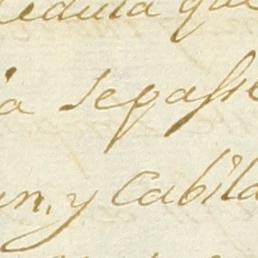 cedula que
a se passe
un, y Cabild